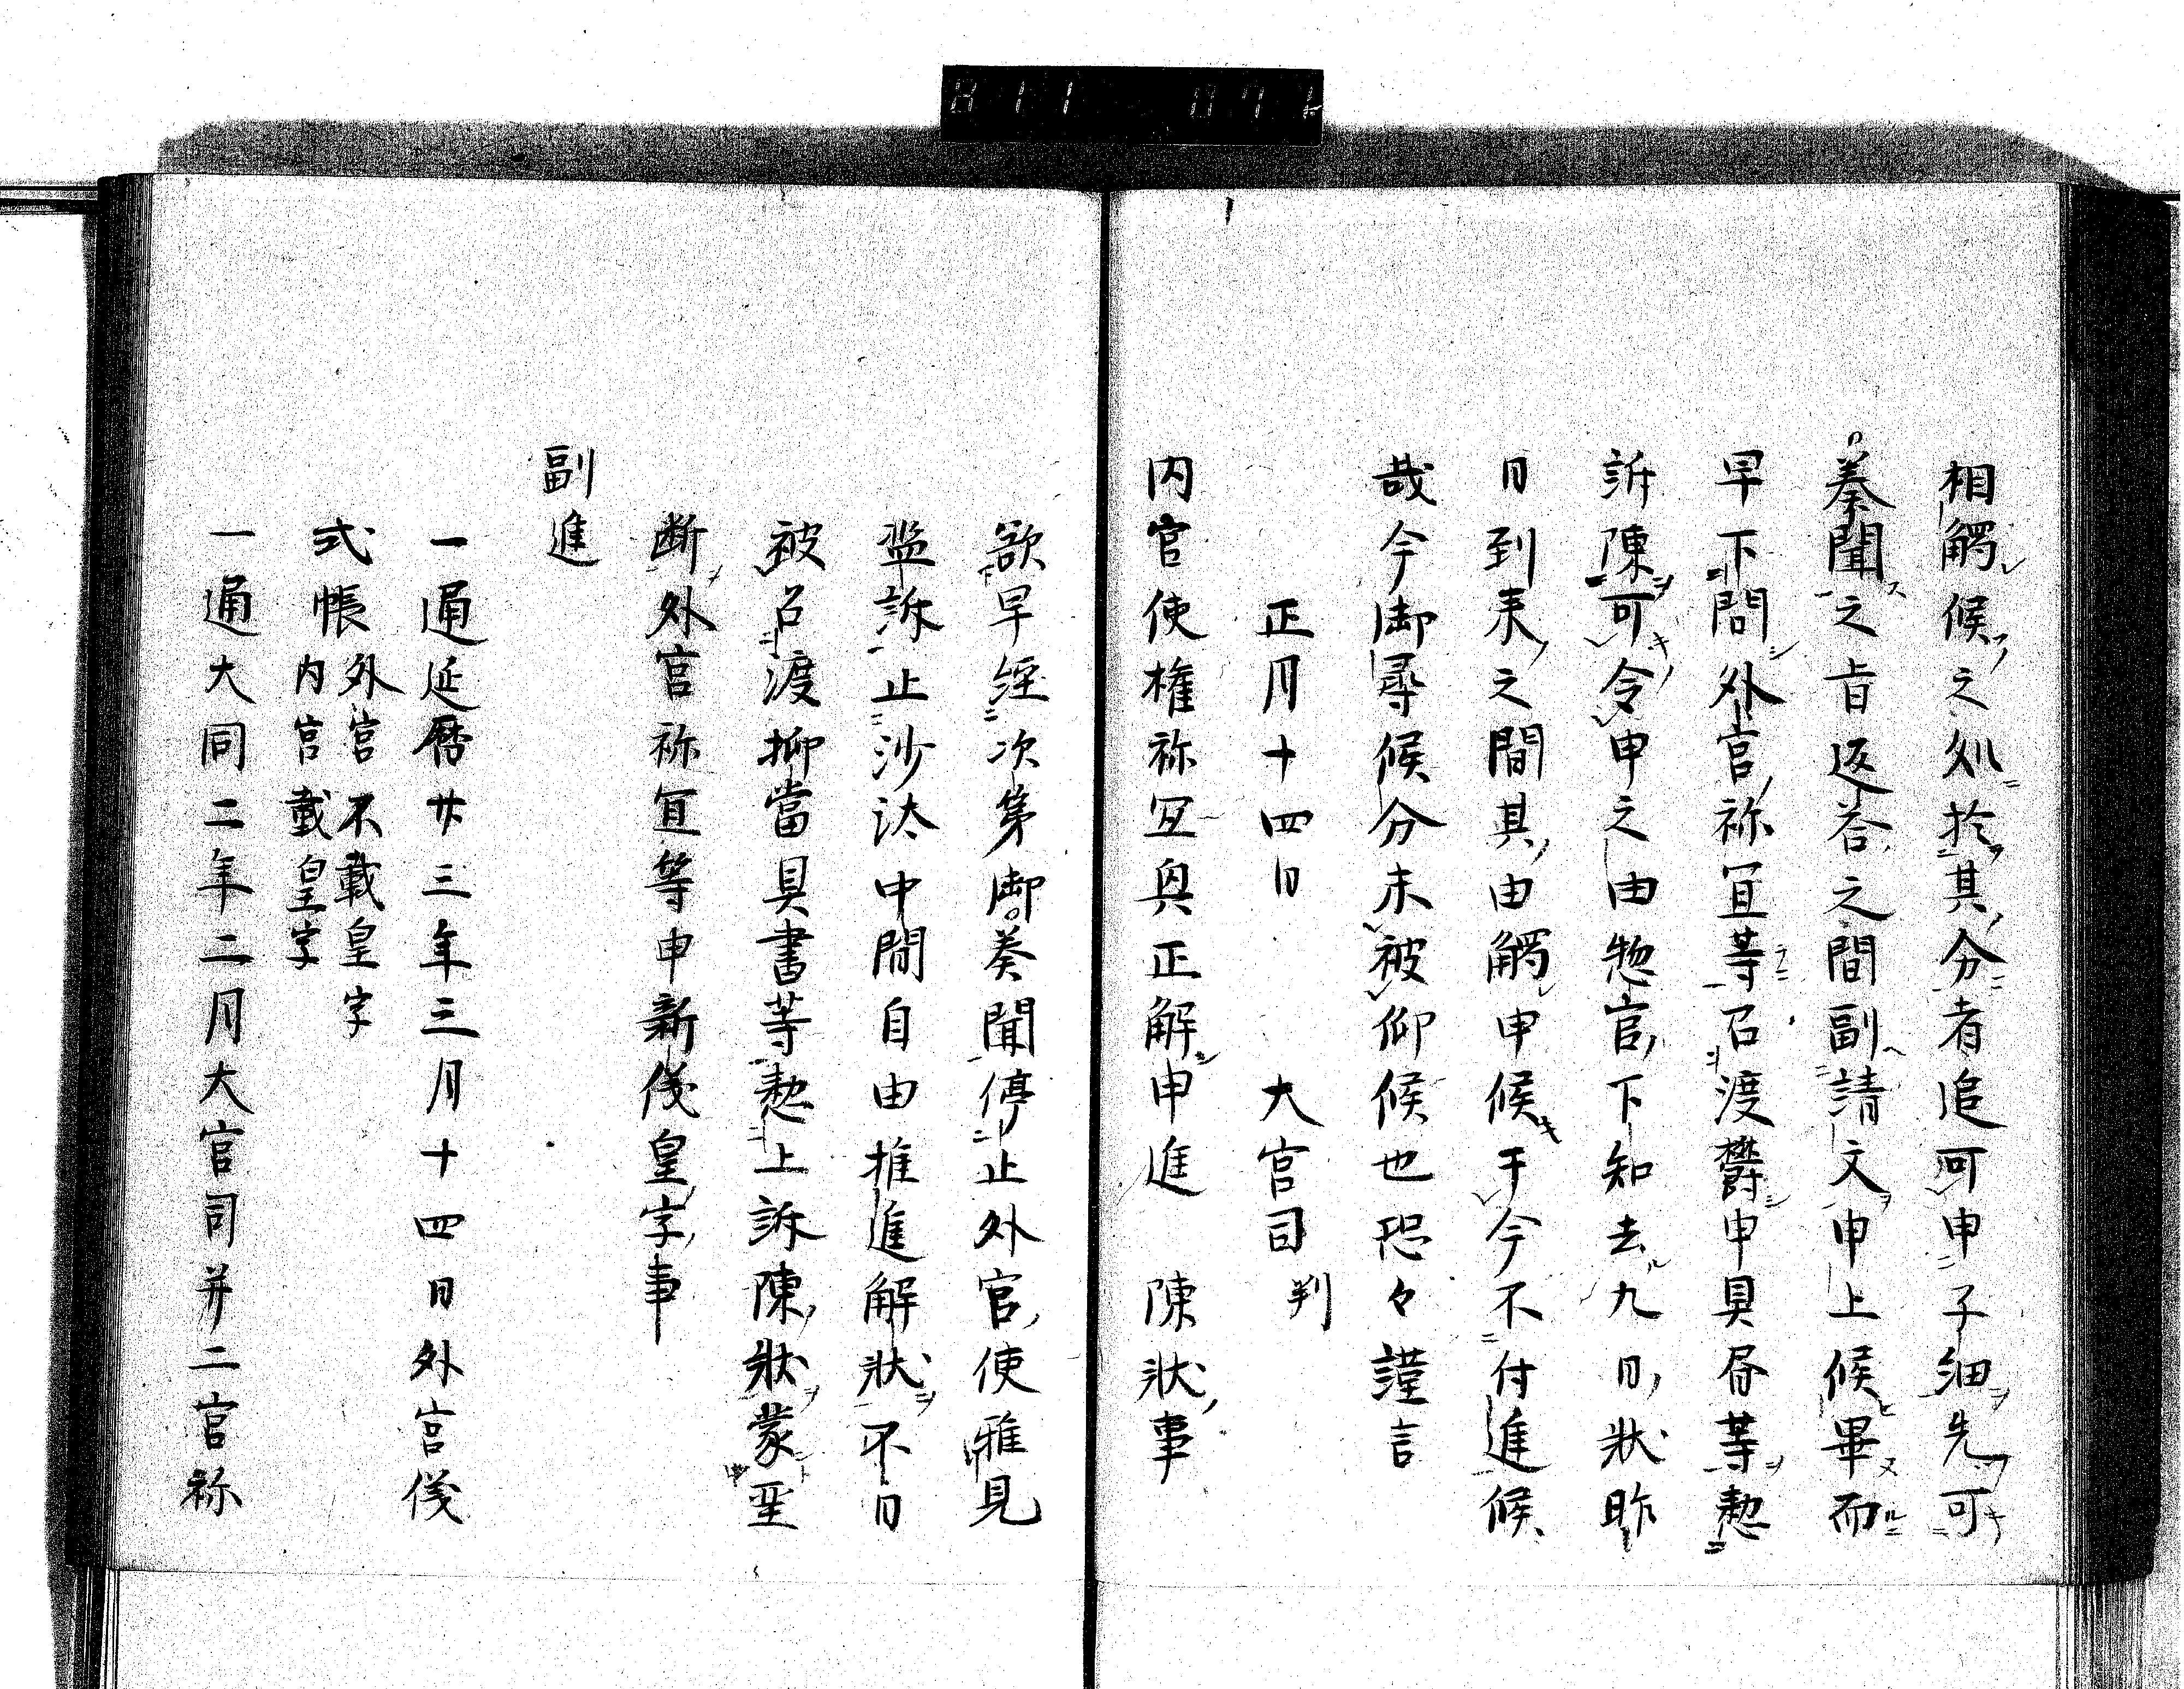 相觸候之処於其分者追可申子細先可
奏聞之旨返答之間副請文申上候畢而
早下問外宮祢宜等召渡欝申具昏等懃
訴陳可令申之由惣官下知去九日状昨
日到来之間其由觸申候于今不付進候
哉今御尋候分未被仰候也恐々謹言
正月十四日 大宮司判
内宮使権祢宜與正解申進 陳状事
欲早経次第御奏聞停止外宮使雅見
監訴止沙汰中間自由推進解状不日
被召渡抑當具書等懃上訴陳状蒙聖
断外宮祢宜等申新儀皇字事
副進
一通延暦廿三年三月十四日外宮儀
式帳外宮不載皇字
内宮載皇字
一通大同二年二月大宮司并二宮祢